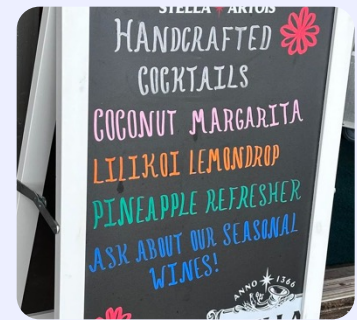 STELLA ARTOIS
HANDCRAFTED
COCKTAILS
COCONUT MARGARITA
LILIKOI LEMONDROP
PINEAPPLE REFRESHER
ASK ABOUT OUR SEASONAL
WINES!
ANNO 1366